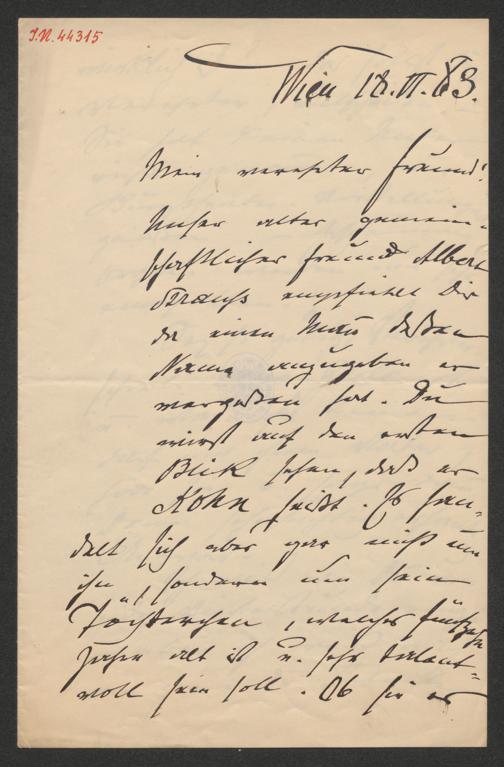 I.N. 44315
Wien 18. VI. 83.
Mein verehrter Freund!
Unser alter gemein-
schaftlicher Freund Albert
Strauß empfiehlt Dir
da einen Mann deßen
Name anzugeben er
vergeßen hat. Du
wirst auf den ersten
Blick sehen, daß er
Kohn heißt. Es han-
delt sich aber gar nicht um
ihn, sondern um sein
Töchterchen, welches fünfzehn
Jahre alt ist u. sehr talent-
voll sein soll. Ob sie es